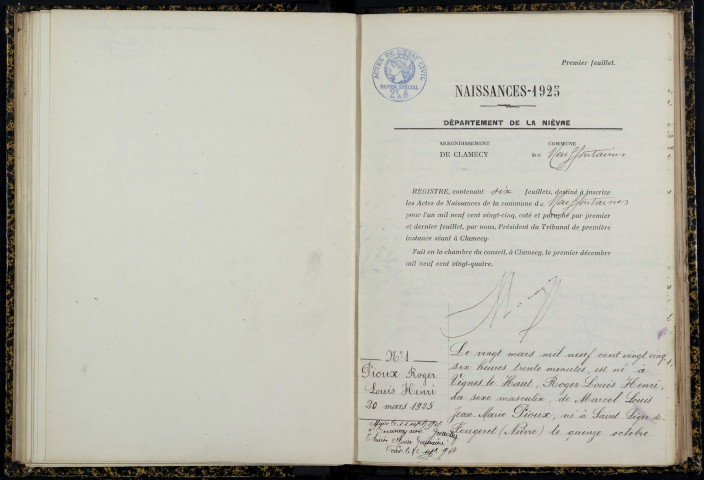 Premier feuillet.
ACTES DE L'ETAT CIVIL
PAPIER SPÉCIAL
NAISSANCES-1925
DÉPARTEMENT DE LA NIÈVRE
ARRONDISSEMENT
DE CLAMECY
COMMUNE
DE Neuffontaines
REGISTRE, contenant six feuillets, destiné à inscrire
les Actes de Naissances de la commune de Neuffontaines
pour l'an mil neuf cent vingt-cinq, coté et paraphé par premier
et dernier feuillet, par nous, Président du Tribunal de première
instance séant à Clamecy.
Fait en la chambre du conseil, à Clamecy, le premier décembre
mil neuf cent vingt-quatre.
N° 1
Pioux Roger
Louis Henri
20 mars 1925
Le vingt mars mil neuf cent vingt cinq,
six heures trente minutes, est né à
Vignes le Haut, Roger Louis Henri,
du sexe masculin, de Marcel Louis
Jean Marie Pioux, né à Saint
Fougeret (Nièvre) le quinze octobre